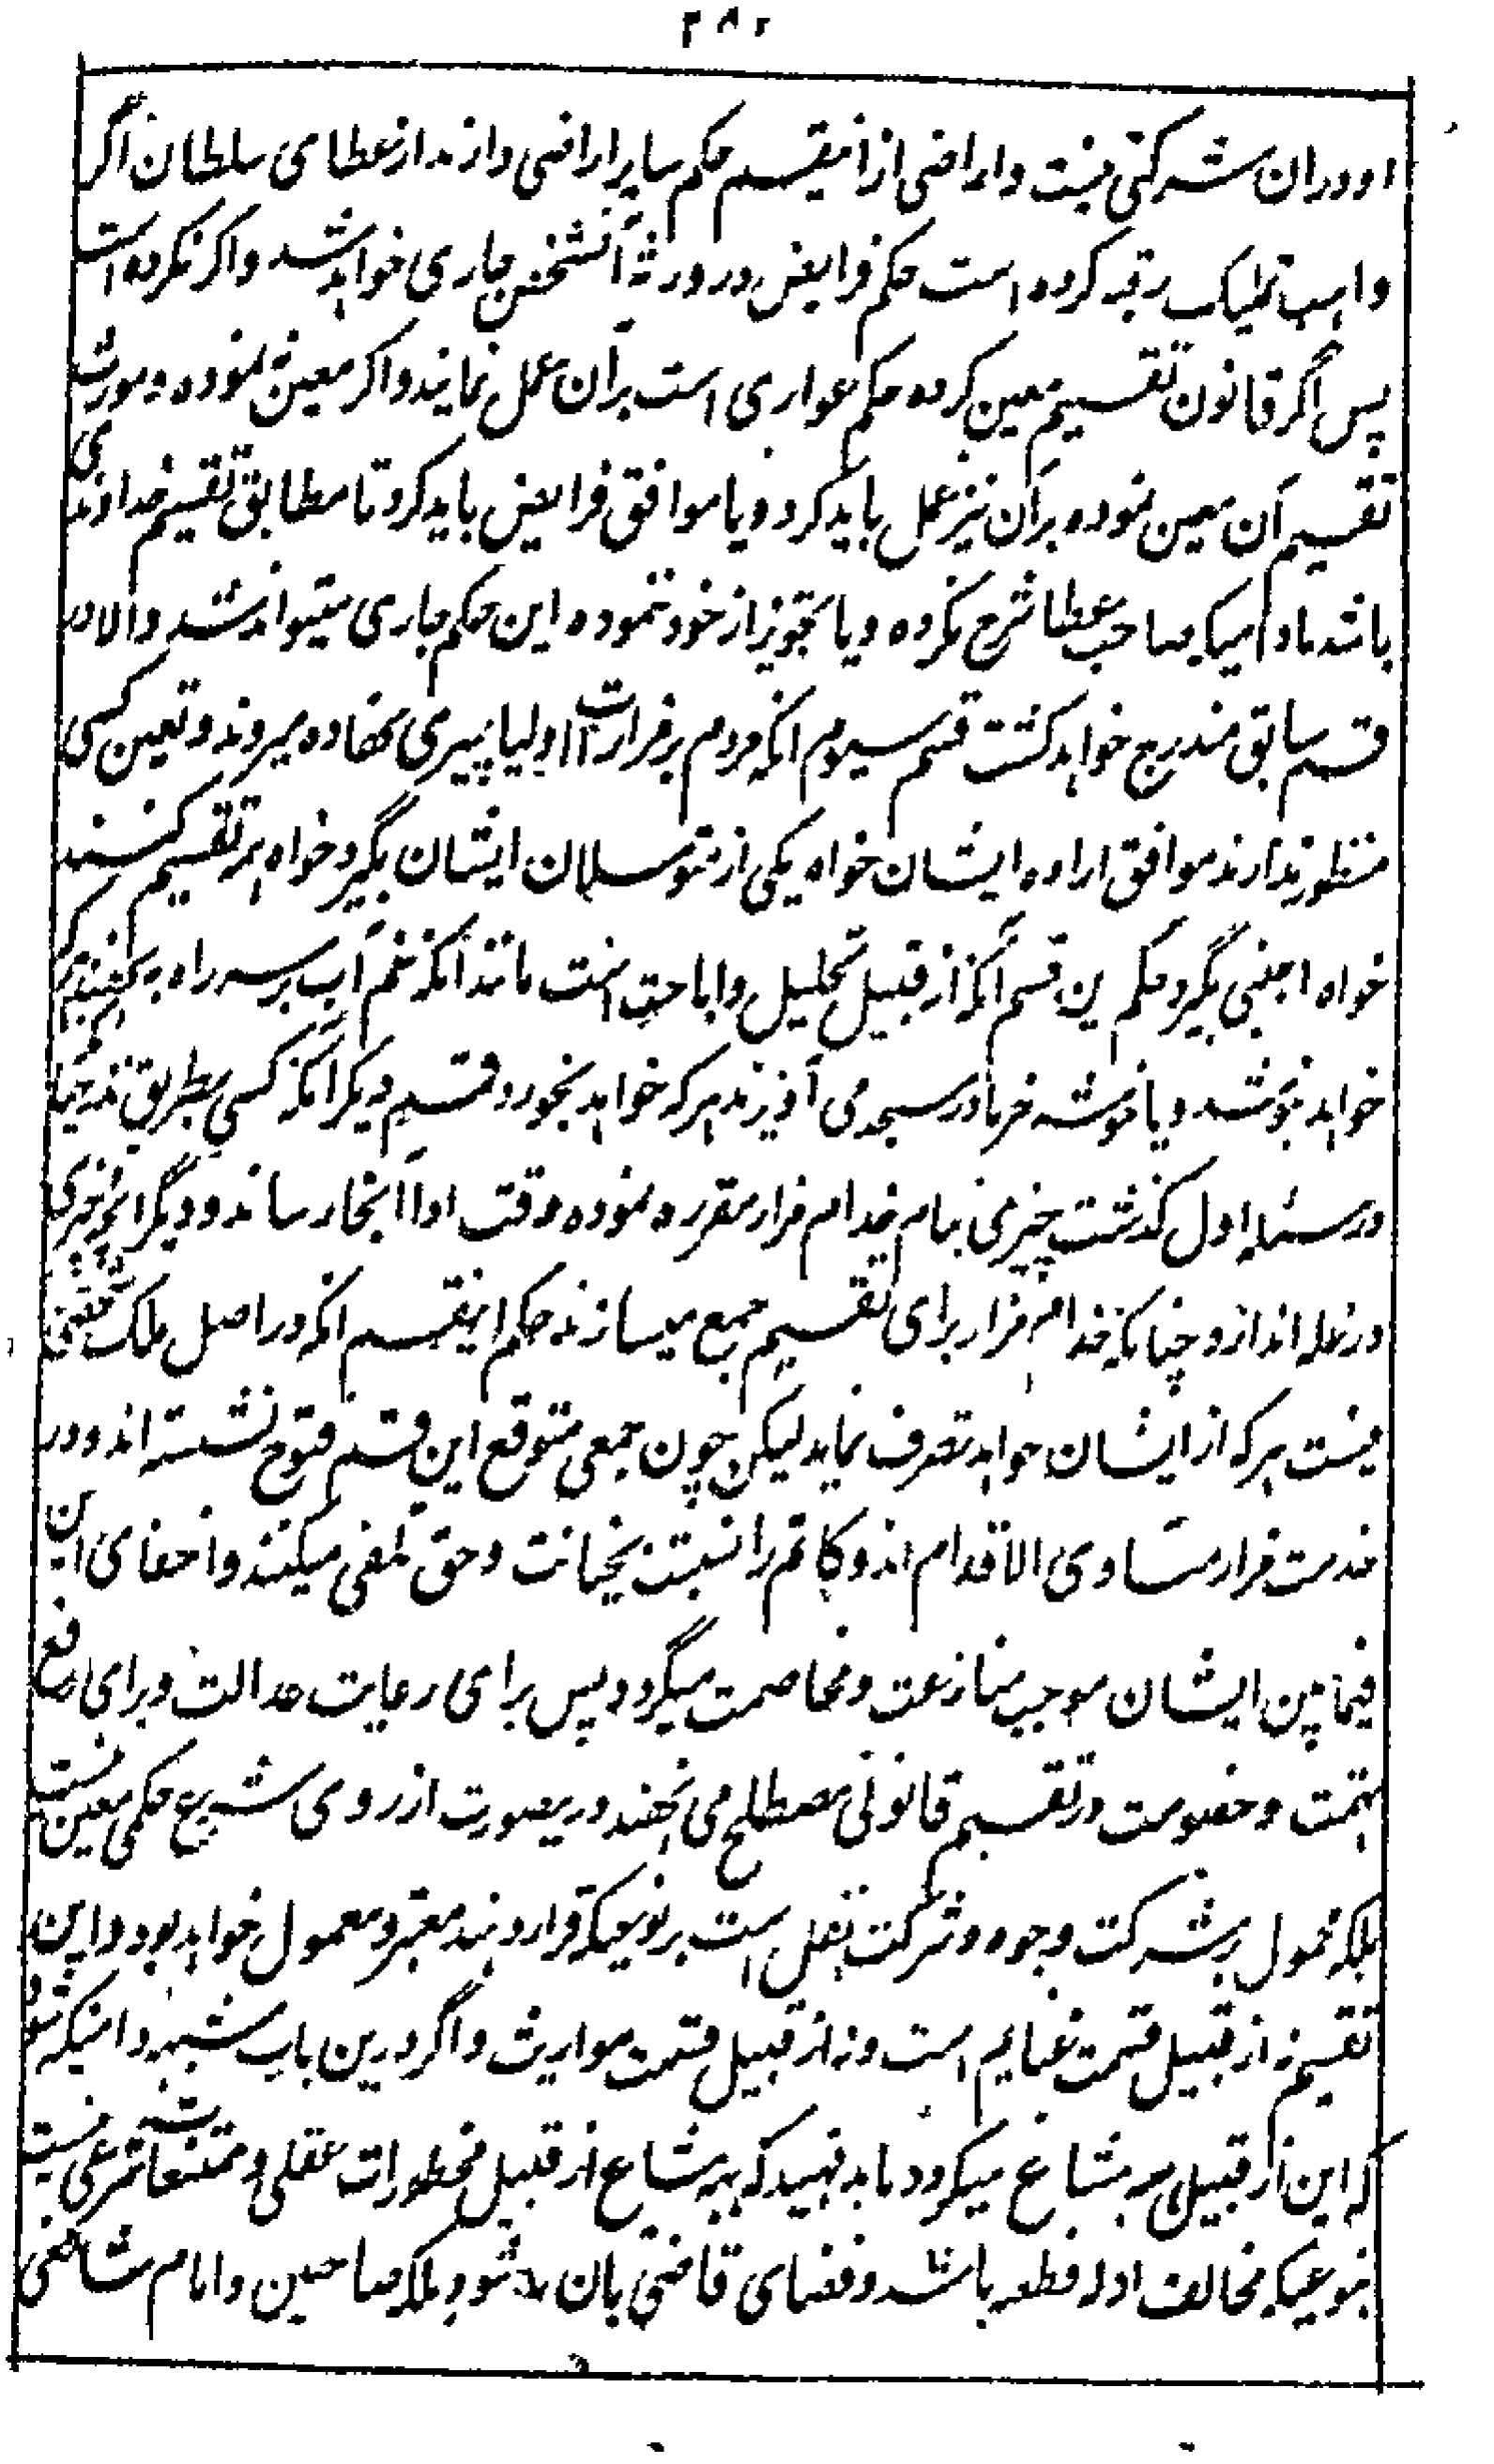 ۲۸۲
او دران شرکتی نیست و اراضی ازانقسم حکم سایر اراضی دارند از عطای سلطان اگر
واهب تملیک رقبه کرده است حکم فرایض در ورثهٔ آنشخص جاری خواهد شد و اگر نکرده است
پس اگر قانون تقسیم معین کرده حکم عواری است بر آن عمل نمایند و اگر معین نموده و صورت
تقسیم آن معین نموده بر آن نیز عمل باید کرد و یا موافق فرایض باید کرد تا مطابق تقسیم خداوندی
باشد مادامیکه صاحب عطا شرح نکرده و یا تجویز از خود ننموده این حکم جاری میتواند شد و الا در
قسم سابق مندرج خواهد گشت قسم سیوم انکه مردم بر مزارات اولیا پیسری نهاده میروند و تعین کسی
منظور ندارند موافق اراده ایشان خواه یکی از متوسلان ایشان بگیرد خواه همه تقسیم کنند
خواه اجنبی بگیرد حکم این قسم آنکه از قبیل تحلیل و اباحت است مانند آنکه خم آب بر سر راه
خواهد بنوشد و یا خوشه خرما در مسجد می آویزند هر که خواهد بخورد و قسم دیگر آنکه کسی بطریق نذر چنانکه
در مسئله اول گذشت چیزی بنام خدام مزار مقرره نموده وقت ادا آنجا رساند و دیگر
در غله اندازد چنانکه خدام مزار برای تقسیم جمع میسازند حکم اینقسم انکه در اصل ملک
نیست هر که از ایشان خواهد تصرف نماید لیکن چون جمعی متوقع این قسم فتوح نشسته اند و در
خدمت مزار متساوی الاقدام اند و کاتم را نسبت بخیانت و حق تلفی میکنند و اخفای این
فیما بین ایشان موجب منازعت و مخاصمت میگردد پس برای رعایت عدالت و برای رفع
تهمت و خصومت در تقسیم قانونی مصطلح می نهند درینصورت از روی شرع حکمی معین نیست
بلکه محمول بر شرکت وجوه و شرکت تقبل است بر نوعیکه قرار دهند معتبر و معمول خواهد بود و این
تقسیم نه از قبیل قسمت غنایم است و نه از قبیل قسمت مواریث و اگر درین باب شبهه وا میکه شود
که این از قبیل هبه مشاع میگردد باید فهمید که هبه مشاع از قبیل محظورات عقلی و ممتنعات شرعی نیست
بنوعیکه مخالف ادله قطعیه باشد و قضای قاضی بآن نافذ نشود بلکه صاحبین و امام شافعی